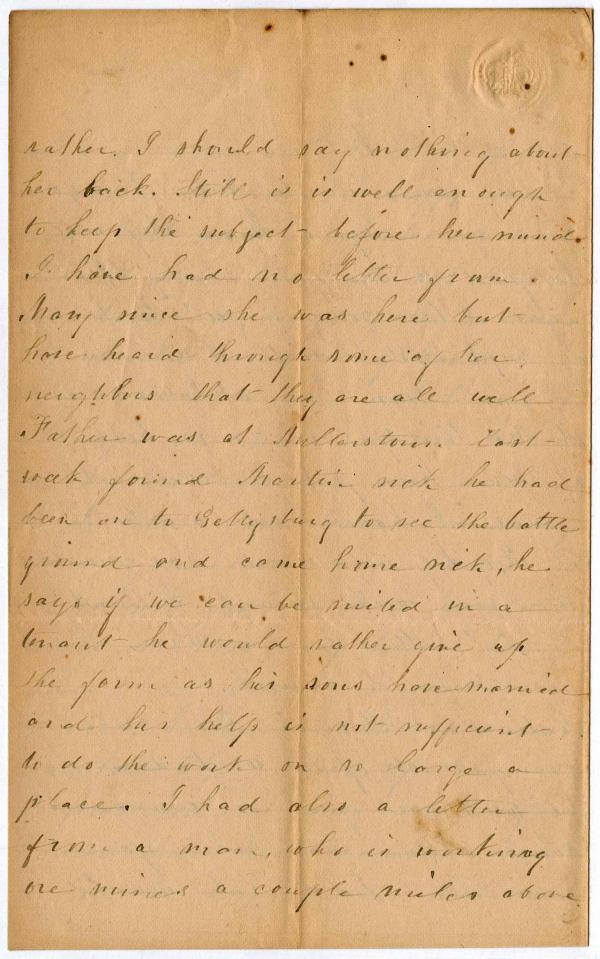 rather. I should say nothing about
her back. Still is is well enough
to keep the subject before her mind.
I have had no letter from
Mary since she was here but
have heard through some of her
neighbors that they are all well
Father was at Millerstown last
week found Martin sick he had
been on to Gettysburg to see the battle
ground and came home sick, he
says if we can be suited in a
tenant he would rather give up
the farm as his sons have married
and his help is not sufficient
to do the work on so large a
place. I had also a letter
from a man, who is working
ore mines a couple miles above